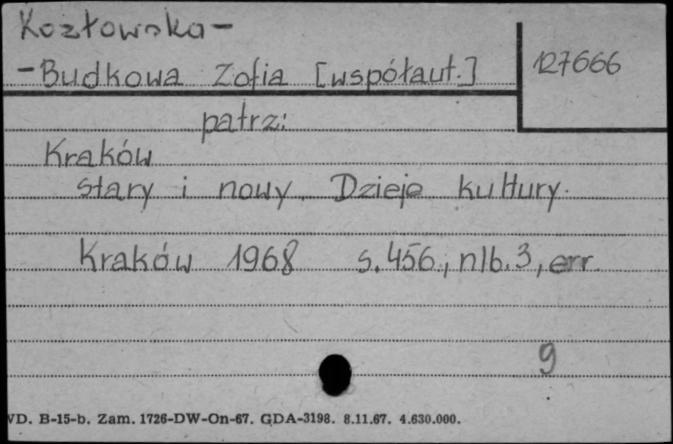 Kozłowska-
-Budkowa Zofia [współaut.]
127666
patrz:
Kraków
stary i nowy. Dzieje kultury.
Kraków 1968 s. 456, nlb. 3, err.
9
VD. B-15-b. Zam. 1726-DW-On-67. GDA-3198. 8.11.67. 4.630.000.